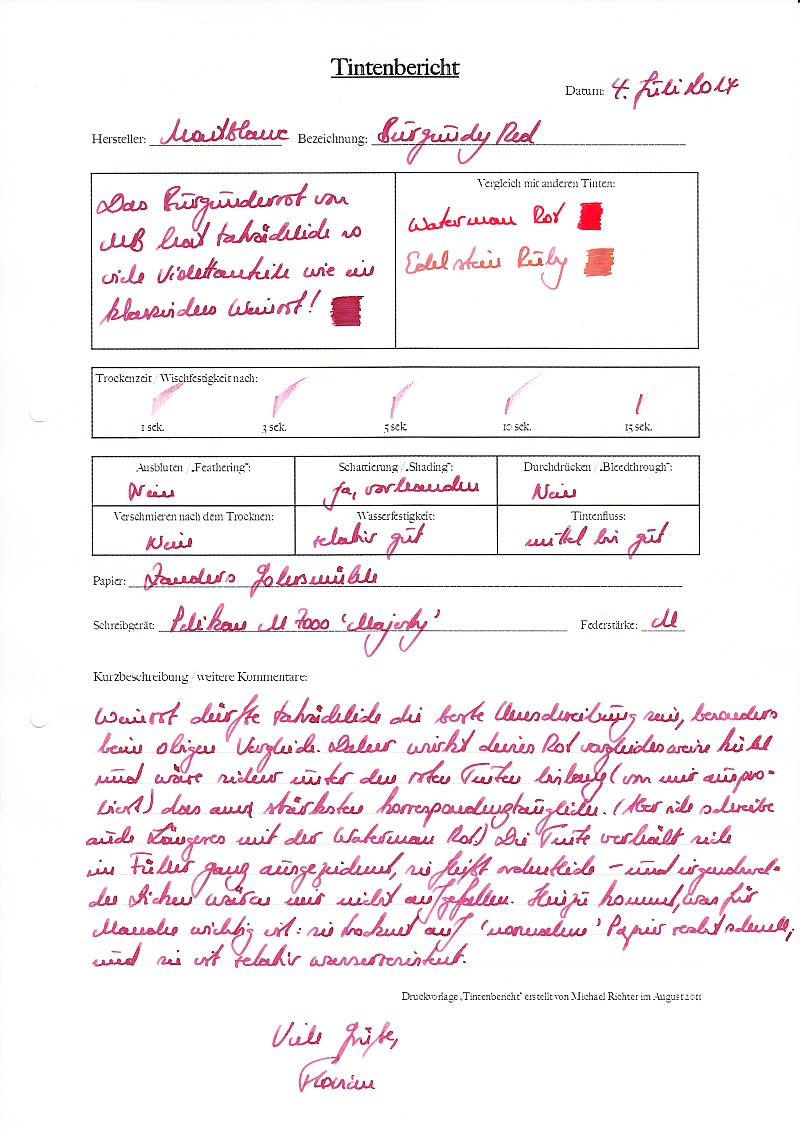 Tintenbericht
Datum: 4. Juli 2017
Hersteller: Montblanc Bezeichnung: Burgundy Red
Das Burgunderrot von
MB hat tatsächlich so
viele Violettanteile wie ein
klassisches Weinrot!
Vergleich mit anderen Tinten:
Waterman Rot
Edelstein Ruby
Trockenzeit / Wischfestigkeit nach:
1 sek. 3 sek. 5 sek. 10 sek. 15 sek.
Ausbluten / „Feathering": Schattierung / „Shading": Durchdrücken / „Bleedthrough":
Nein ja, vorhanden Nein
Verschmieren nach dem Trocknen: Wasserfestigkeit: Tintenfluss:
Nein relativ gut mittel bis gut
Papier: Zanders Gohrsmühle
Schreibgerät: Pelikan M 7000 'Majesty' Federstärke: M
Kurzbeschreibung / weitere Kommentare:
Weinrot dürfte tatsächlich die beste Umschreibung sein, besonders
beim obigen Vergleich. Daher wirkt dieses Rot vergleichsweise kühl
und wäre sicher unter den roten Tinten bislang (von mir auspro-
biert) das am stärksten korrespondenztaugliche. (Aber ich schreibe
auch Längeres mit der Waterman Rot.) Die Tinte verhält sich
im Füller ganz ausgezeichnet, sie fließt ordentlich – und irgendwel-
che Zicken wären mir nicht aufgefallen. Hinzu kommt, was für
Manche wichtig ist: sie trocknet auf 'normalem' Papier recht schnell,
und sie ist relativ wasserresistent.
Druckvorlage „Tintenbericht" erstellt von Michael Richter im August 2011
Viele Grüße,
Florian